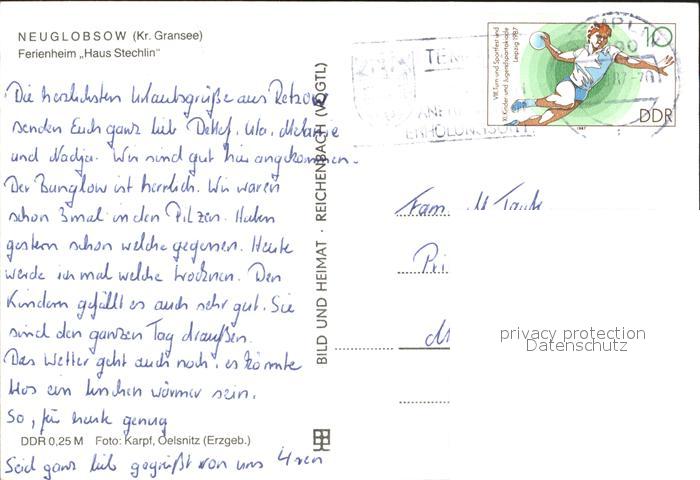 NEUGLOBSOW (Kr. Gransee)
Ferienheim „Haus Stechlin“
Die herzlichsten Urlaubsgrüße aus Retzow
senden Euch ganz lieb Detlef, Uta, Melanie
und Nadja. Wir sind gut hier angekommen.
Der Bunglow ist herrlich. Wir waren
schon 3mal in den Pilzen. Haben
gestern schon welche gegessen. Heute
werde ich mal welche trocknen. Den
Kindern gefällt es auch sehr gut. Sie
sind den ganzen Tag draußen.
Das Wetter geht auch noch, es könnte
blos ein bischen wärmer sein.
So, für heute genug
DDR 0,25 M Foto: Karpf, Oelsnitz (Erzgeb.)
Seid ganz lieb gegrüßt von uns 4ren
BILD UND HEIMAT · REICHENBACH (VOGTL)
TEM
ERHOLUNGSORT
VIII. Turn- und Sportfest und
XI. Kinder- und Jugendspartakiade
Leipzig 1987
10
DDR
1987
Fam.
privacy protection
Datenschutz